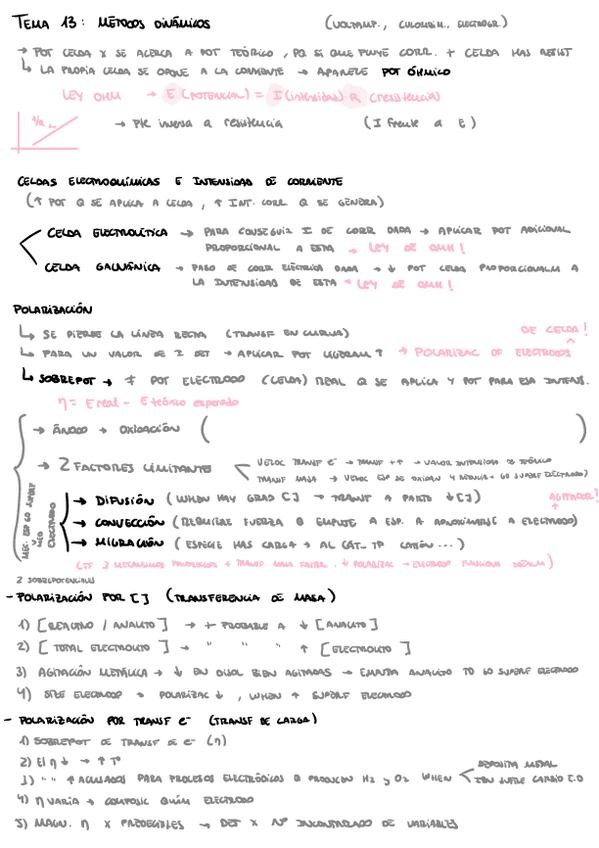 TEMA 13: MÉTODOS DINÁMICOS (VOLTAMP., CULOMBIM., ELECTROGR.)
→ POT CELDA X SE ACERCA A POT TEÓRICO, PQ SI QUE FLUYE CORR. + CELDA HAS RESIST
↳ LA PROPIA CELDA SE OPONE A LA CORRIENTE → APARECE POT ÓHMICO
LEY OHM → E (POTENCIAL) = I (intensidad) · R (resistencia)
1/R
→ Pte inversa a resistencia (I frente a E)
CELDAS ELECTROQUÍMICAS E INTENSIDAD DE CORRIENTE
(↑ POT Q SE APLICA A CELDA, ↑ INT. CORR Q SE GENERA)
CELDA ELECTROLÍTICA → PARA CONSEGUIR I DE CORR DADA → APLICAR POT ADICIONAL
PROPORCIONAL A ESTA → LEY DE OHM!
CELDA GALVÁNICA → PASO DE CORR ELÉCTRICA DADA → ↓ POT CELDA PROPORCIONALM A
LA INTENSIDAD DE ESTA → LEY DE OHM!
POLARIZACIÓN
↳ SE PIERDE LA LÍNEA RECTA (TRANSF EN CURVA) DE CELDA!
↳ PARA UN VALOR DE I DET → APLICAR POT LIGERAM ↑ → POLARIZAC OF ELECTRODOS
↳ SOBREPOT → ≠ POT ELECTRODO (CELDA) REAL Q SE APLICA Y POT PARA ESA INTENS.
η = E real - E teórico esperado
→ ÁNODO → OXIDACIÓN ( )
→ 2 FACTORES LIMITANTES
VELOC TRANSF e⁻ → TRANSF ↑↑ → VALOR INTENSIDAD DE TEÓRICO
TRANSF MASA → VELOC ESP SE OXIDAN Y REDUCEN → GO SUPERF ELECTRODO)
MEC. ESP GO SUPERF
ELECTRODO
→ DIFUSIÓN (WHEN HAY GRAD [ ] → TRANSIT A PARTE ↓ [ ]) AGITADOR!
→ CONVECCIÓN (REQUIERE FUERZA Q EMPUJE A ESP. A APROXIMARSE A ELECTRODO)
→ MIGRACIÓN (ESPECIE HAS CARGA → AL CÁT.. TP CATIÓN ...)
2 SOBREPOTENCIALES
- POLARIZACIÓN POR [ ] (TRANSFERENCIA DE MASA)
1) [REACTIVO / ANALITO] → + PROBABLE A ↓ [ANALITO]
2) [TOTAL ELECTROLITO] → " " " ↑ [ELECTROLITO]
3) AGITACIÓN → ↓ EN DISOL BIEN AGITADAS → ANALITO TO GO SUPERF ELECTRODO
4) SIZE ELECTROD → POLARIZAC ↓, WHEN ↑ SUPERF ELECTRODO
- POLARIZACIÓN POR TRANSF e⁻ (TRANSF DE CARGA)
1) SOBREPOT DE TRANSF DE e⁻ (η)
2) El η ↓ → ↑ Tª
3) " " ↑ ACUSADOS PARA PROCESOS ELECTRÓDICOS Q PRODUCEN H₂ y O₂ WHEN
DEPOSITA METAL
ION SUFRE CAMBIO E.O
4) η VARIA → COMPOSIC QUÍM ELECTRODO
5) MAGN. η X PREDECIBLES → DET X Nº INCONTROLADO DE VARIABLES